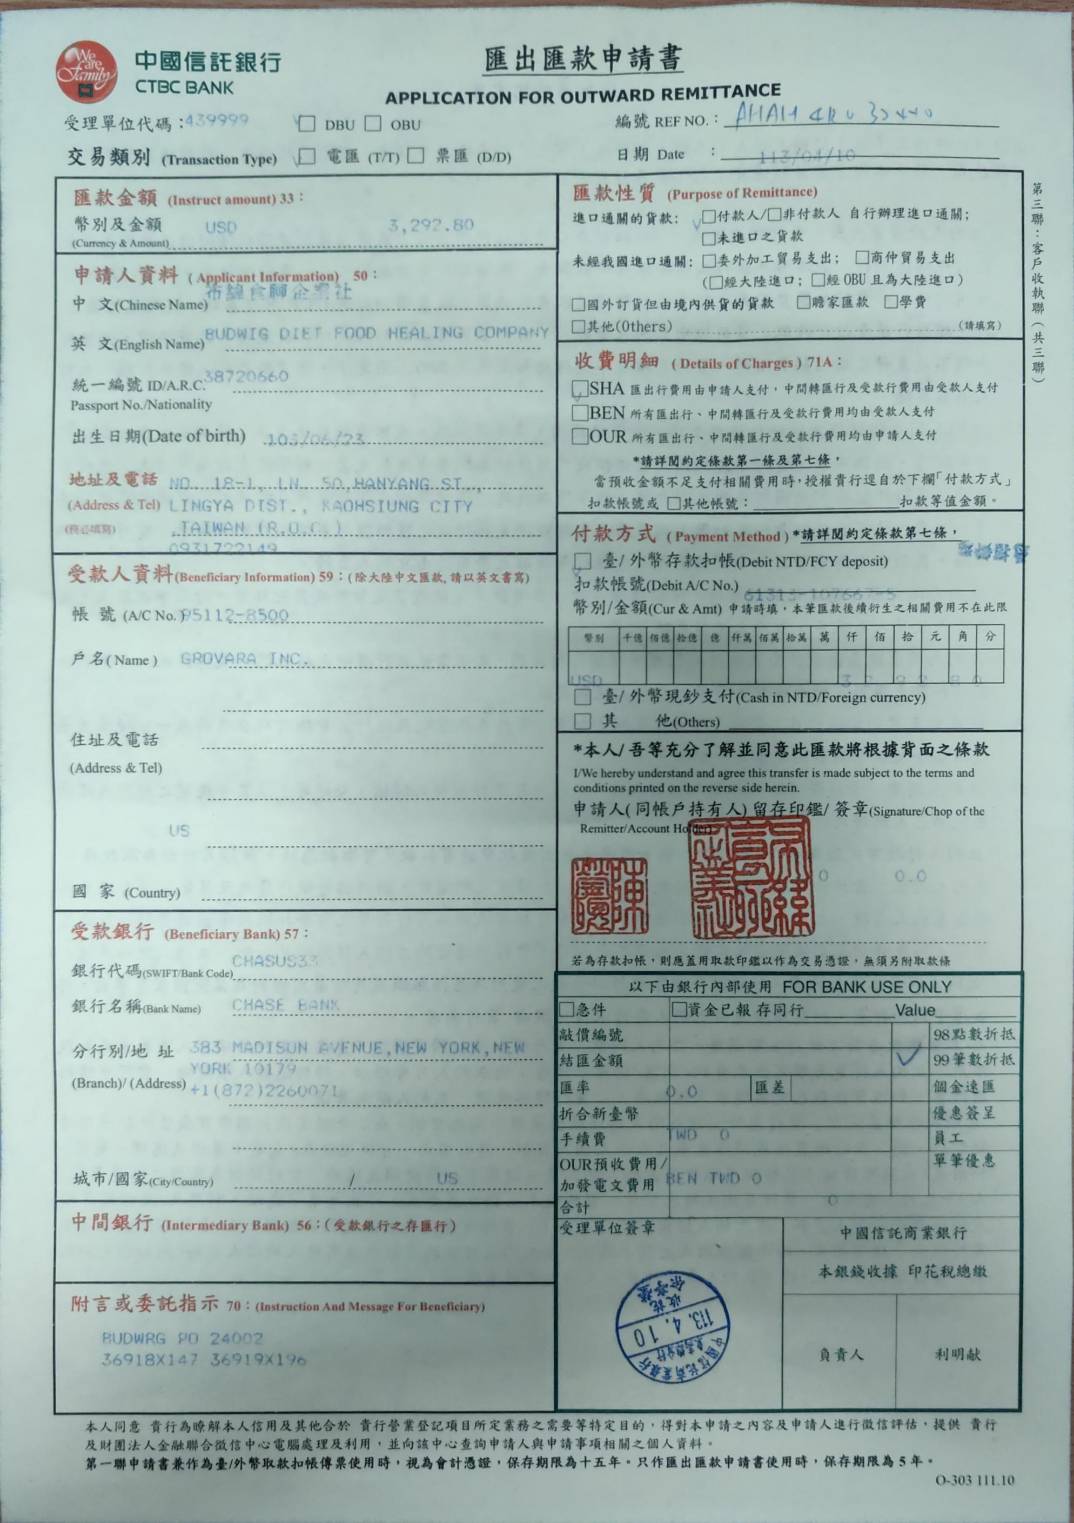 We are Family
中國信託銀行
CTBC BANK
匯出匯款申請書
APPLICATION FOR OUTWARD REMITTANCE
受理單位代碼：439999 □ DBU □ OBU
編號 REF NO.：
交易類別 (Transaction Type) □ 電匯 (T/T) □ 票匯 (D/D)
日期 Date ：113/04/10
第三聯：客戶收執聯（共三聯）
匯款金額 (Instruct amount) 33：
幣別及金額 USD 3,292.80
(Currency & Amount)
申請人資料 ( Applicant Information) 50：
中 文(Chinese Name)
英 文(English Name) BUDWIG DIET FOOD HEALING COMPANY
統一編號 ID/A.R.C. 38720660
Passport No./Nationality
出生日期(Date of birth) 103/06/23
地址及電話 NO. 18-1, LN. 50,HANYANG ST.,
(Address & Tel) LINGYA DIST., KAOHSIUNG CITY
(務必填寫) ,TAIWAN (R.O.C.)
0931722149
受款人資料(Beneficiary Information) 59：(除大陸中文匯款, 請以英文書寫)
帳 號 (A/C No.) 95112-8500
戶名( Name ) GROVARA INC.
住址及電話
(Address & Tel)
US
國 家 (Country)
受款銀行 (Beneficiary Bank) 57：
銀行代碼(SWIFT/Bank Code) CHASUS33
銀行名稱(Bank Name) CHASE BANK
分行別/地 址 383 MADISUN AVENUE,NEW YORK,NEW
YORK 10179
(Branch)/ (Address) +1(872)2260071
城市/國家(City/Country) / US
中間銀行 (Intermediary Bank) 56：(受款銀行之存匯行)
附言或委託指示 70：(Instruction And Message For Beneficiary)
BUDWRG PO 24002
36918X147 36919X196
匯款性質 (Purpose of Remittance)
進口通關的貨款： □付款人/□非付款人 自行辦理進口通關；
□未進口之貨款
未經我國進口通關：□委外加工貿易支出； □商仲貿易支出
(□經大陸進口；□經 OBU 且為大陸進口)
□國外訂貨但由境內供貨的貨款 □贍家匯款 □學費
□其他(Others) (請填寫)
收費明細 ( Details of Charges ) 71A：
□SHA 匯出行費用由申請人支付，中間轉匯行及受款行費用由受款人支付
□BEN 所有匯出行、中間轉匯行及受款行費用均由受款人支付
□OUR 所有匯出行、中間轉匯行及受款行費用均由申請人支付
*請詳閱約定條款第一條及第七條，
當預收金額不足支付相關費用時，授權貴行逕自於下欄「付款方式」
扣款帳號或 □其他帳號： 扣款等值金額。
付款方式 ( Payment Method ) *請詳閱約定條款第七條，
□ 臺/ 外幣存款扣帳(Debit NTD/FCY deposit)
扣款帳號(Debit A/C No.) 61313-107667-5
幣別/金額(Cur & Amt) 申請時填，本筆匯款後續衍生之相關費用不在此限
幣別 千億 佰億 拾億 億 仟萬 佰萬 拾萬 萬 仟 佰 拾 元 角 分
USD 3 2 9 2 8 0
□ 臺/ 外幣現鈔支付(Cash in NTD/Foreign currency)
□ 其 他(Others)
*本人/ 吾等充分了解並同意此匯款將根據背面之條款
I/We hereby understand and agree this transfer is made subject to the terms and
conditions printed on the reverse side herein.
申請人( 同帳戶持有人) 留存印鑑/ 簽章(Signature/Chop of the
Remitter/Account Holder)
0 0.0
若為存款扣帳，則應蓋用取款印鑑以作為交易憑證，無須另附取款條
以下由銀行內部使用 FOR BANK USE ONLY
□急件 □資金已報 存同行 Value
敲價編號 98點數折抵
結匯金額 ✓ 99筆數折抵
匯率 0.0 匯差 個金速匯
折合新臺幣 優惠簽呈
手續費 TWD 0 員工
OUR預收費用/ 單筆優惠
加發電文費用 BEN TWD 0
合計 0
受理單位簽章
113. 4. 10
中國信託商業銀行
本銀錢收據 印花稅總繳
負責人 利明献
本人同意 貴行為瞭解本人信用及其他合於 貴行營業登記項目所定業務之需要等特定目的，得對本申請之內容及申請人進行徵信評估，提供 貴行
及財團法人金融聯合徵信中心電腦處理及利用，並向該中心查詢申請人與申請事項相關之個人資料。
第一聯申請書兼作為臺/外幣取款扣帳傳票使用時，視為會計憑證，保存期限為十五年。只作匯出匯款申請書使用時，保存期限為 5 年。
O-303 111.10